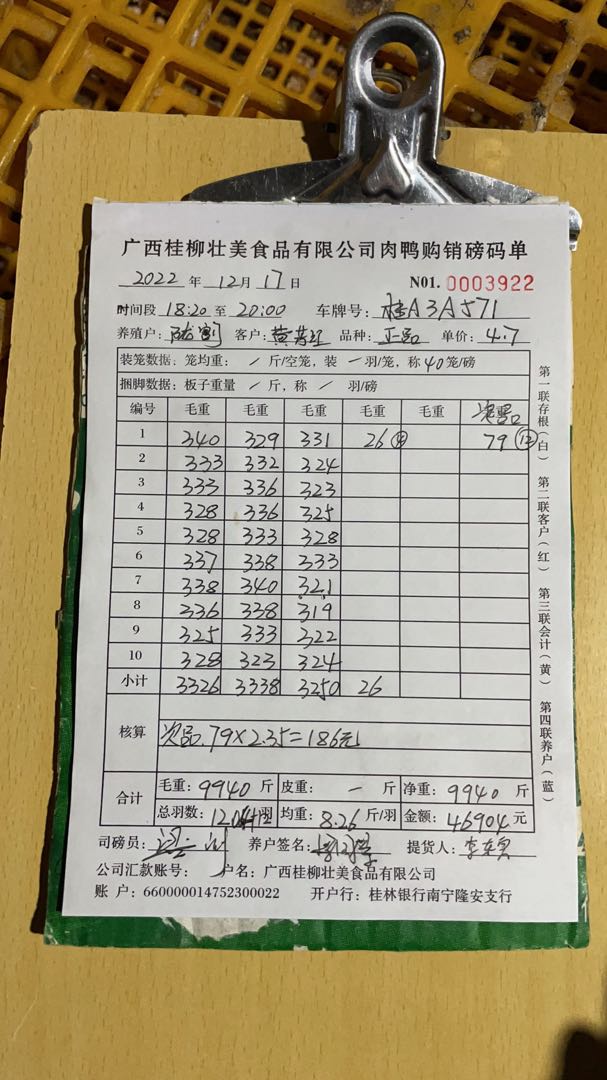 广西桂柳壮美食品有限公司肉鸭购销磅码单
2022 年 12 月 17 日 N01. 0003922
时间段 18:20 至 20:00 车牌号: 桂A3A571
养殖户: 客户: 黄 品种: 正品 单价: 4.7
装笼数据: 笼均重: / 斤/空笼, 装 一 羽/笼, 称 40 笼/磅
捆脚数据: 板子重量 / 斤, 称 / 羽/磅
编号 毛重 毛重 毛重 毛重 毛重 次品
1 340 329 331 26 ④ 79 ⑫
2 333 332 324
3 333 336 323
4 328 336 325
5 328 333 328
6 337 338 333
7 338 340 321
8 336 338 319
9 325 333 322
10 328 323 324
小计 3326 3338 3250 26
核算 次品.79×2.35=186元
合计 毛重: 9940 斤 皮重: 一 斤 净重: 9940 斤
总羽数: 1204 均重: 8.26 斤/羽 金额: 46904 元
司磅员: 养户签名: 提货人: 李
公司汇款账号: 户名: 广西桂柳壮美食品有限公司
账 户: 660000014752300022 开户行: 桂林银行南宁隆安支行
第一联存根(白) 第二联客户(红) 第三联会计(黄) 第四联养户(蓝)